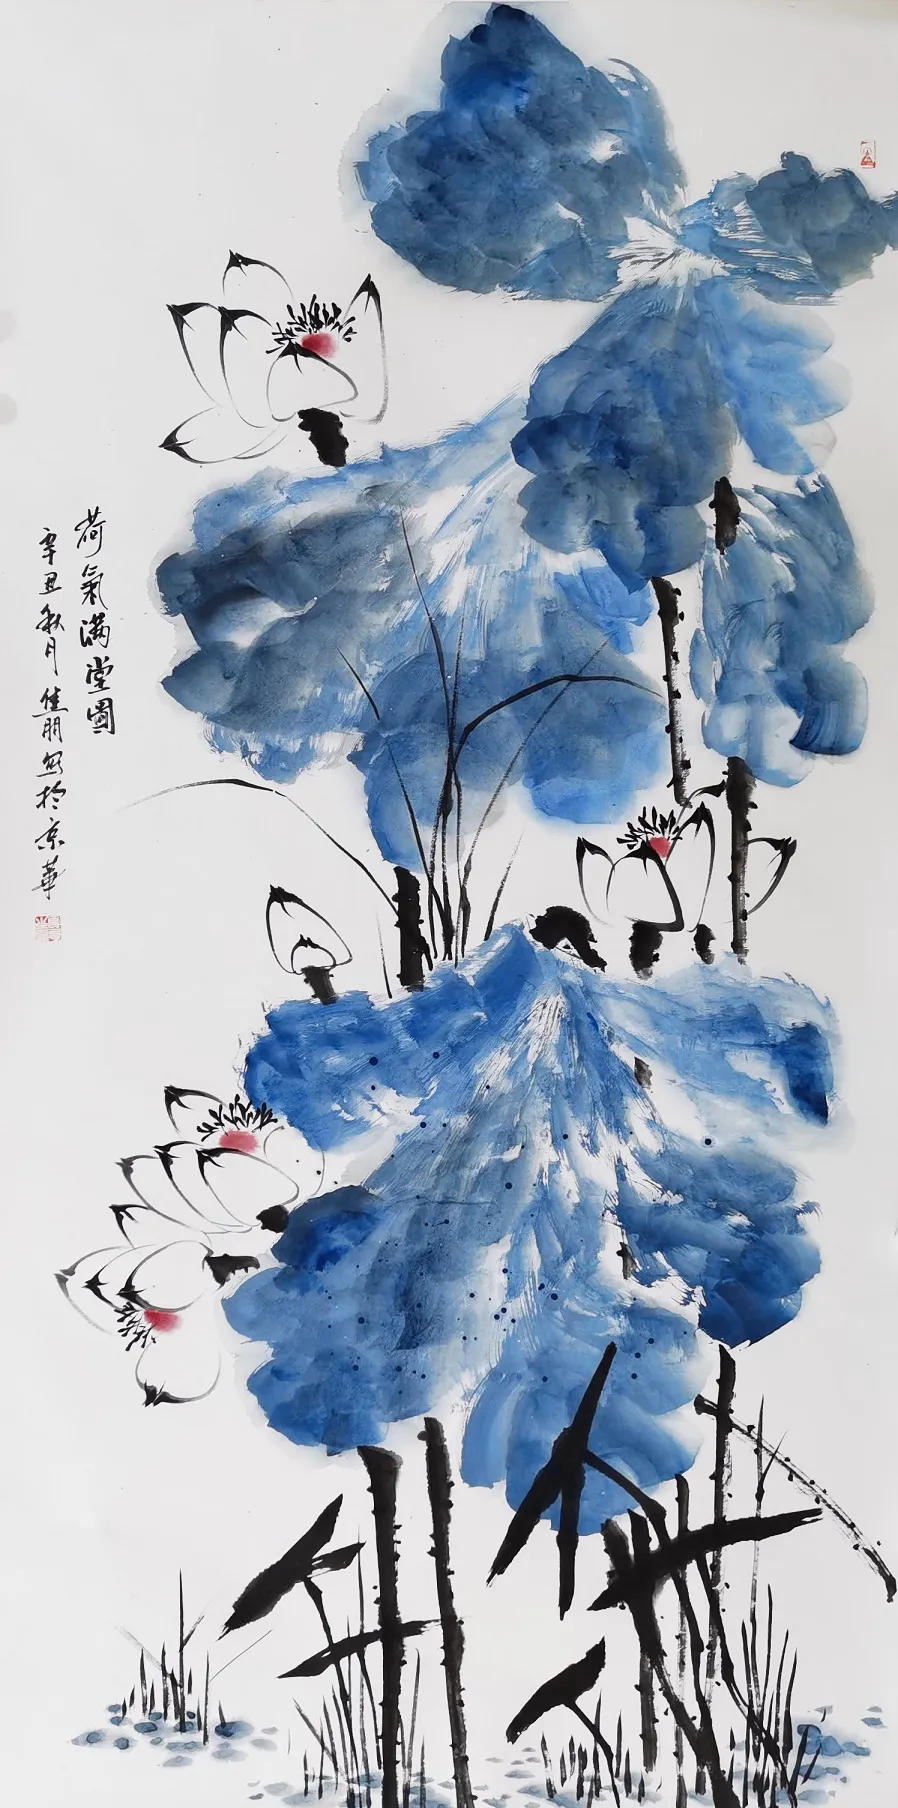 荷氣满堂圖
辛丑秋月佳朋写於京華